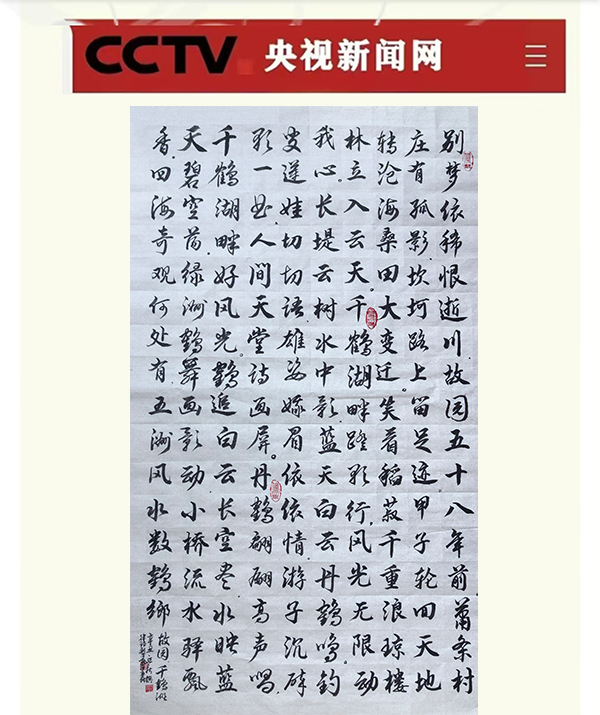 CCTV 央视新闻网
别梦依稀恨逝川故园五十八年前萧条村
庄有孤影坎坷路上留足迹甲子轮回天地
转沧海桑田大变迁。笑看稻菽千重浪琼楼
林立入云天。千鹤湖畔踏歌行。风光无限动
我心。长堤云树水中影。蓝天白云丹鹤鸣钓
叟莲娃切切语雄姿眉依依情游子沉醉
歌一曲。人间天堂诗画屏。丹鹤翩翩高声唱
千鹤湖畔好风光。鹤追白云长空尽水映蓝
天碧空荡绿洲鹤舞画影动小桥流水驿飘
香四海奇观何处有五洲风水数鹤乡
故园千鹤湖